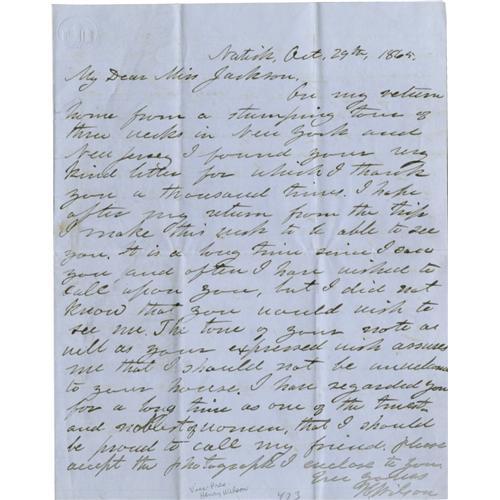 Natick, Oct. 29th, 1865.
My Dear Miss Jackson,
On my return
home from a stumping tour of
three weeks in New York and
New Jersey I found your very
kind letter for which I thank
you a thousand times. I hope
after my return from the trip
I make this week to be able to see
you. It is a long time since I saw
you and often I have wished to
call upon you, but I did not
know that you would wish to
see me. The tone of your note as
well as your expressed wish assures
me that I should not be unwelcome
to your house. I have regarded you
for a long time as one of the truest
and noblest of women, that I should
be proud to call my friend. Please
accept the photograph I enclose to you.
Ever yours
H Wilson
Vice-Pres
Henry Wilson
473